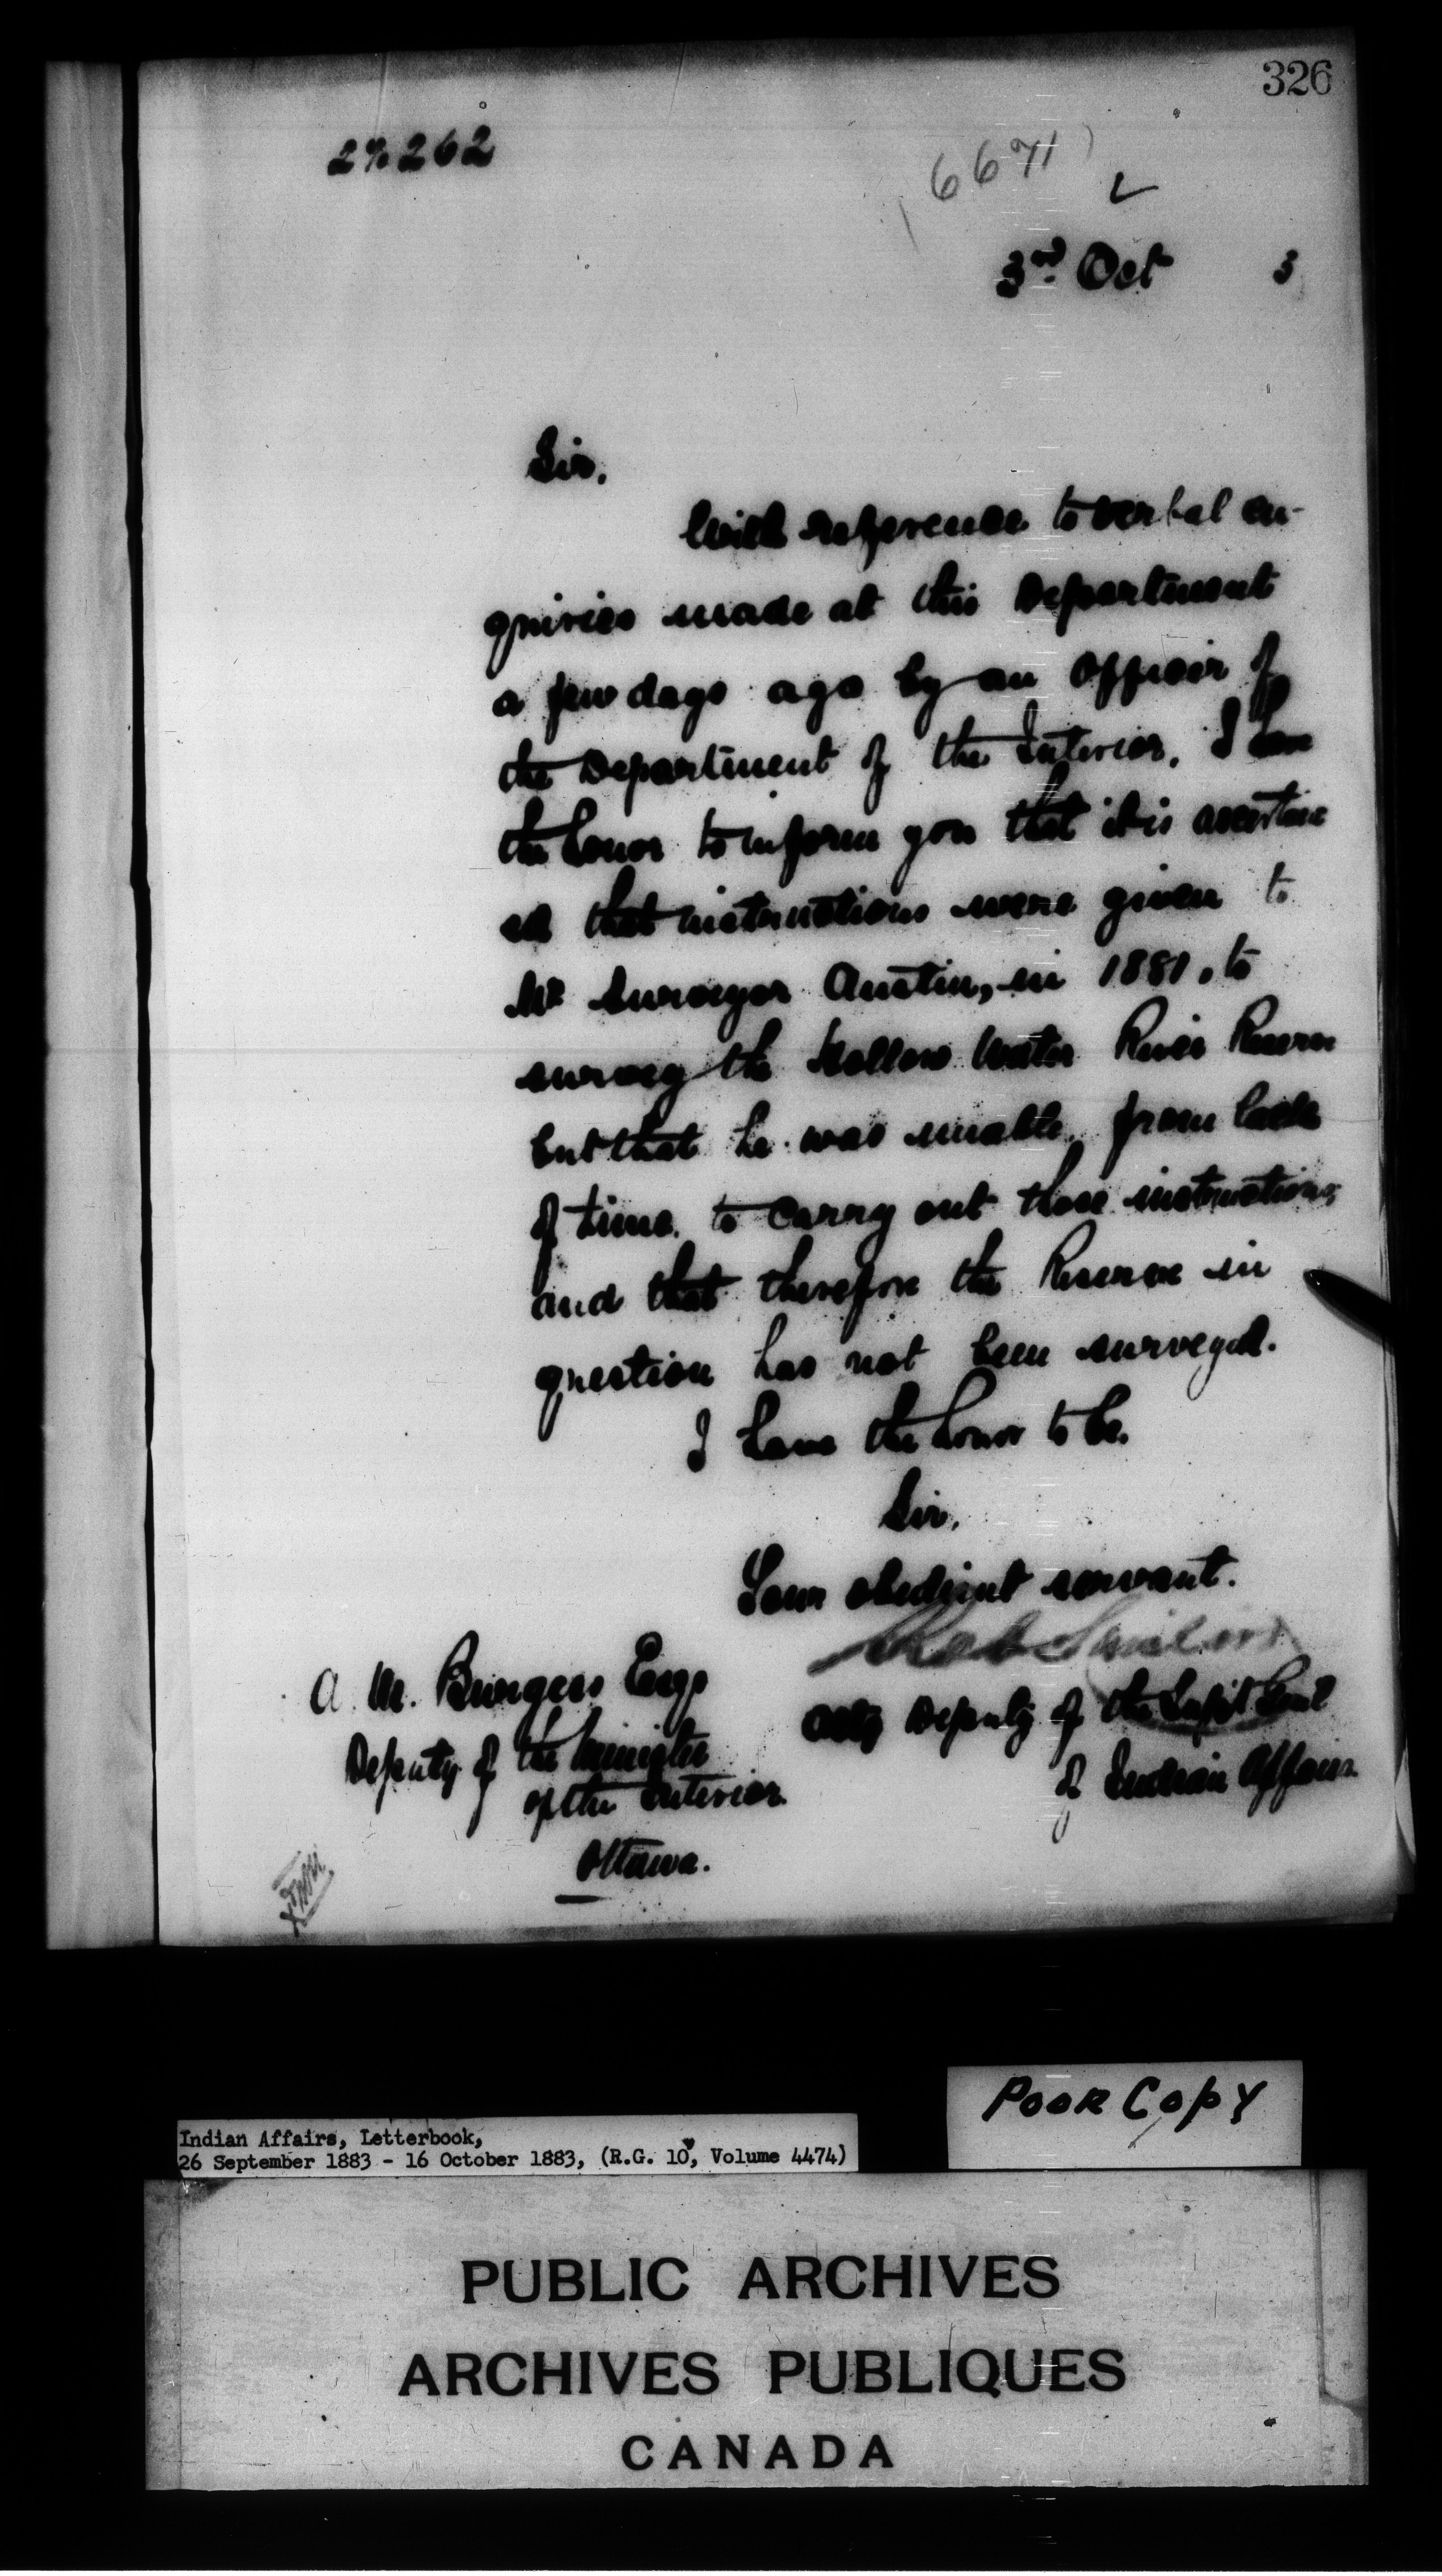 326
262
6671
3rd Oct 3
Sir,
With reference to verbal en-
quiries made at this Department
a few days ago by an officer of
the Department of the Interior, I have
the honor to inform you that it is ascertain
ed that instructions were given to
Mr Surveyor Austin, in 1881, to
survey the Hollow Water River Reserve
but that he was unable, from lack
of time, to carry out those instructions
and that therefore the Reserve in
question has not been surveyed.
I have the honor to be,
Sir,
Your obedient servant.
Rob Sinclair
Actg Deputy of the Supt Genl
of Indian Affairs
A. M. Burgess Esq
Deputy of the Minister
of the Interior
Ottawa.
Poor Copy
Indian Affairs, Letterbook,
26 September 1883 - 16 October 1883, (R.G. 10, Volume 4474)
PUBLIC ARCHIVES
ARCHIVES PUBLIQUES
CANADA